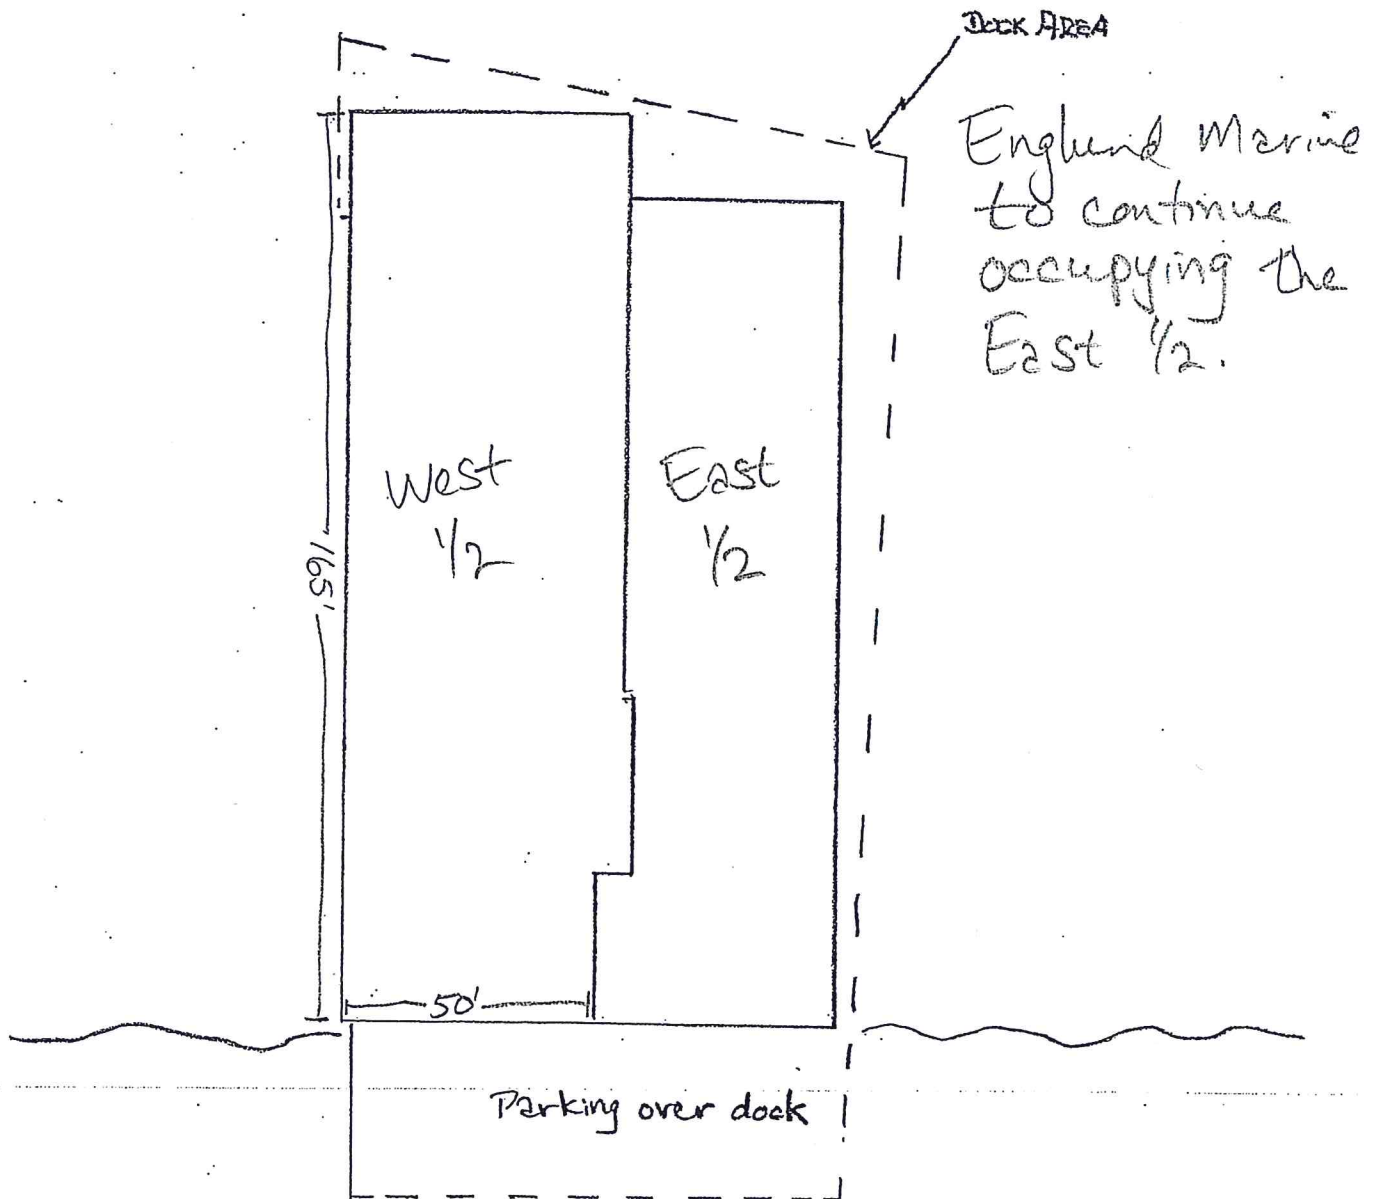 DOCK AREA
Englund Marine
to continue
occupying the
East 1/2.
West
1/2
East
1/2
165'
50'
Parking over dock